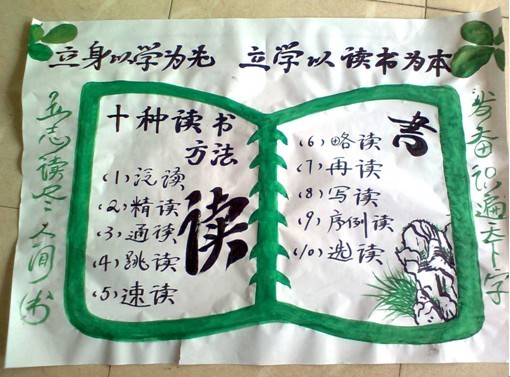 立身以学为先 立学以读书为本
立志读尽人间书
发奋识遍天下字
十种读书
方法
(1)泛读
(2)精读
(3)通读
(4)跳读
(5)速读
读
書
(6)略读
(7)再读
(8)写读
(9)序例读
(10)选读